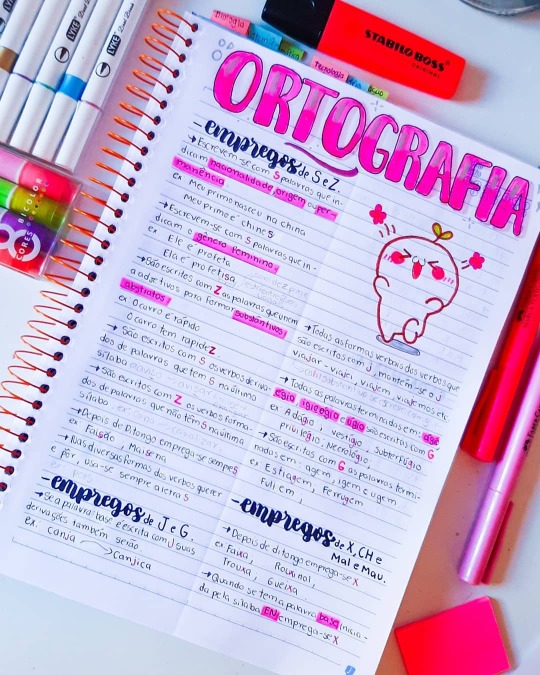 STABILO BOSS
ORIGINAL
LYKE
LYKE
BICOLOR
CORES
Tecnologia
ORTOGRAFIA
empregos de S e Z.
→ Escrevem-se com S palavras que in-
dicam nacionalidade, origem ou per-
manência
ex Meu primo nasceu na china
meu primo é chinês
→ Escrevem-se com S palavras que in-
dicam o gênero feminino.
ex. Ele é profeta
Ela é profetisa
→ São escritos com Z as palavras que unem
a adjetivos para formar substântivos
abstratos!
ex O carro é rápido
O carro tem rapidez
→ São escritos com S os verbos deriva-
dos de palavras que tem S na última
sílaba
→ São escritos com Z os verbos forma-
dos de palavras que não têm S na última
sílabo
→ Depois de Ditongo emprega-se sempre S
ex Faisão, Maisena
→ Nas diversas formas dos verbos querer
e pôr, usa-se sempre a letra S
empregos de J e G
→ Se a palavra base é escrita com J suas
derivações também serão.
ex. Canja → Canjica
→ Todas as formas verbais dos verbos que
são escritas com J, mantêm-se o J
viajar - viajei, viajem, viajemos etc
→ Todas as palavras terminadas em: ágio,
égio, ígio, ógio e úgio são escritas com G
ex Adágio, vestígio, Subterfúgio
privilégio, Necrológio,
→ São escritos com G as palavras termi-
nadas em: agem, igem e ugem
ex Estiagem, Ferrugem
Fuligem,
empregos de X, CH e
Mal e Mau.
→ Depois de ditongo emprega-se X
ex Faixa, Rouxinol,
Trouxa, Gueixa
→ Quando se tem a palavra base inicia-
da pela sílaba EN emprega-se X